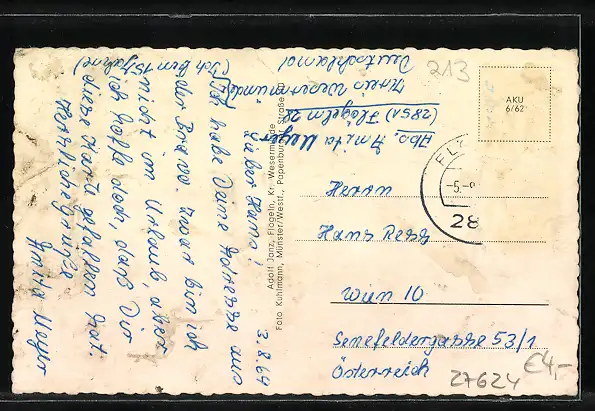 3.8.64
Lieber Hans!
Ich habe Deine Adresse aus
der Bravo. Zwar bin ich
nicht im Urlaub, aber
ich hoffe doch, daß Dir
diese Karte gefallen hat.
Herzliche Grüße
Anita Meyer
(Ich bin 15 Jahre)
Abs. Anita Meyer
(2851) Flögeln 28
Kreis Wesermünde
Deutschland
Adolf Janz, Flögeln, Kr. Wesermünde
Foto Kuhlmann, Münster/Westf., Papenburger Straße
213
AKU
6/62
FL
-5.-
28
Herrn
Hans Ress
Wien 10
Senefeldergasse 53/1
Österreich
27624
€4,-